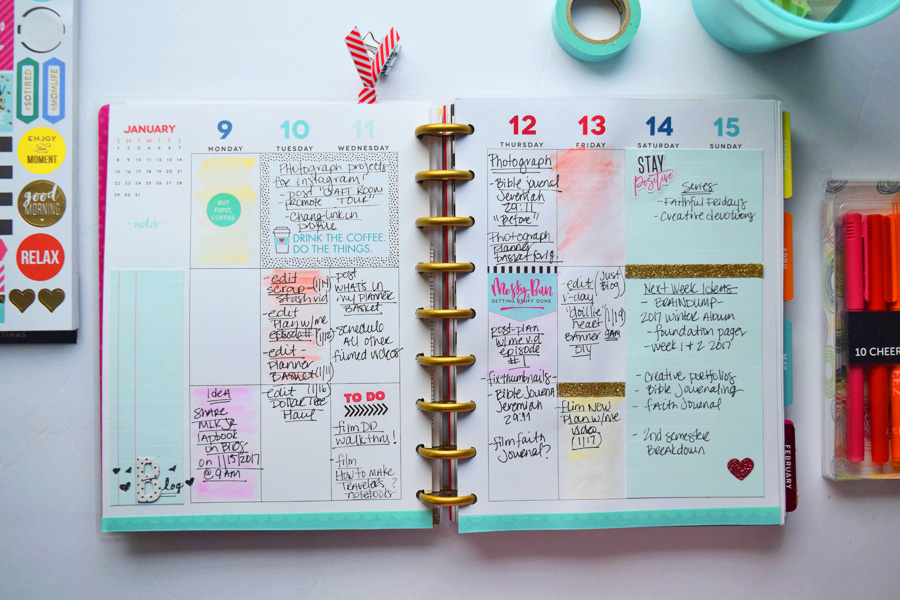 #SOTIRED
#MOMLIFE
ENJOY
MOMENT
good
MORNING
RELAX
JANUARY
S M T W T F S
1 2 3 4 5 6 7
8 9 10 11 12 13 14
15 16 17 18 19 20 21
22 23 24 25 26 27 28
29 30 31
notes
Blog
9
MONDAY
BUT
FIRST,
COFFEE
Idea
Share
MLK Jr
lapbook
on Blog
on 1/15/2017
@ 9AM
10
TUESDAY
11
WEDNESDAY
Photograph projects
for instagram!
- post "CRAFT ROOM
Promote TOUR"
- Change link in
profile
DRINK THE COFFEE.
DO THE THINGS.
- edit
scrap
stash vid
- edit
Plan w/me
episode #1 (1/12)
- edit -
Planner
Basket (1/11)
- edit (1/16)
Dollar Tree
Haul
- post
WHATS IN
my PLANNER
BASKET
- schedule
All other
filmed videos
TO DO
- film DD
walk thru!
- film
HOW TO MAKE
Travelers ?
notebooks
12
THURSDAY
Photograph
- Bible journal
Jeremiah
29:11
"Before"
Photograph
planner
basket for ig.
Messy Bun
GETTING STUFF DONE
post - plan
w/me vid
episode
#1
- fix thumbnails -
Bible Journal
Jeremiah
29:11
- film faith
Journal?
13
FRIDAY
edit (Just
V-day Blog)
"doillie
heart (1/19)
Banner 9AM
DIY
Film New
Plan w/me
Video
(1/17)
14
SATURDAY
15
SUNDAY
STAY
positive
Series -
- Faithful Fridays
- Creative devotions
Next Week Ideas -
- BRAINDUMP -
2017 Winter Album
- foundation pages
- Week 1 & 2 2017
- Creative portfolios
- Bible Journaling
- Faith Journal
- 2nd semester
Breakdown
APRIL
MAY
FEBRUARY
10 CHEER